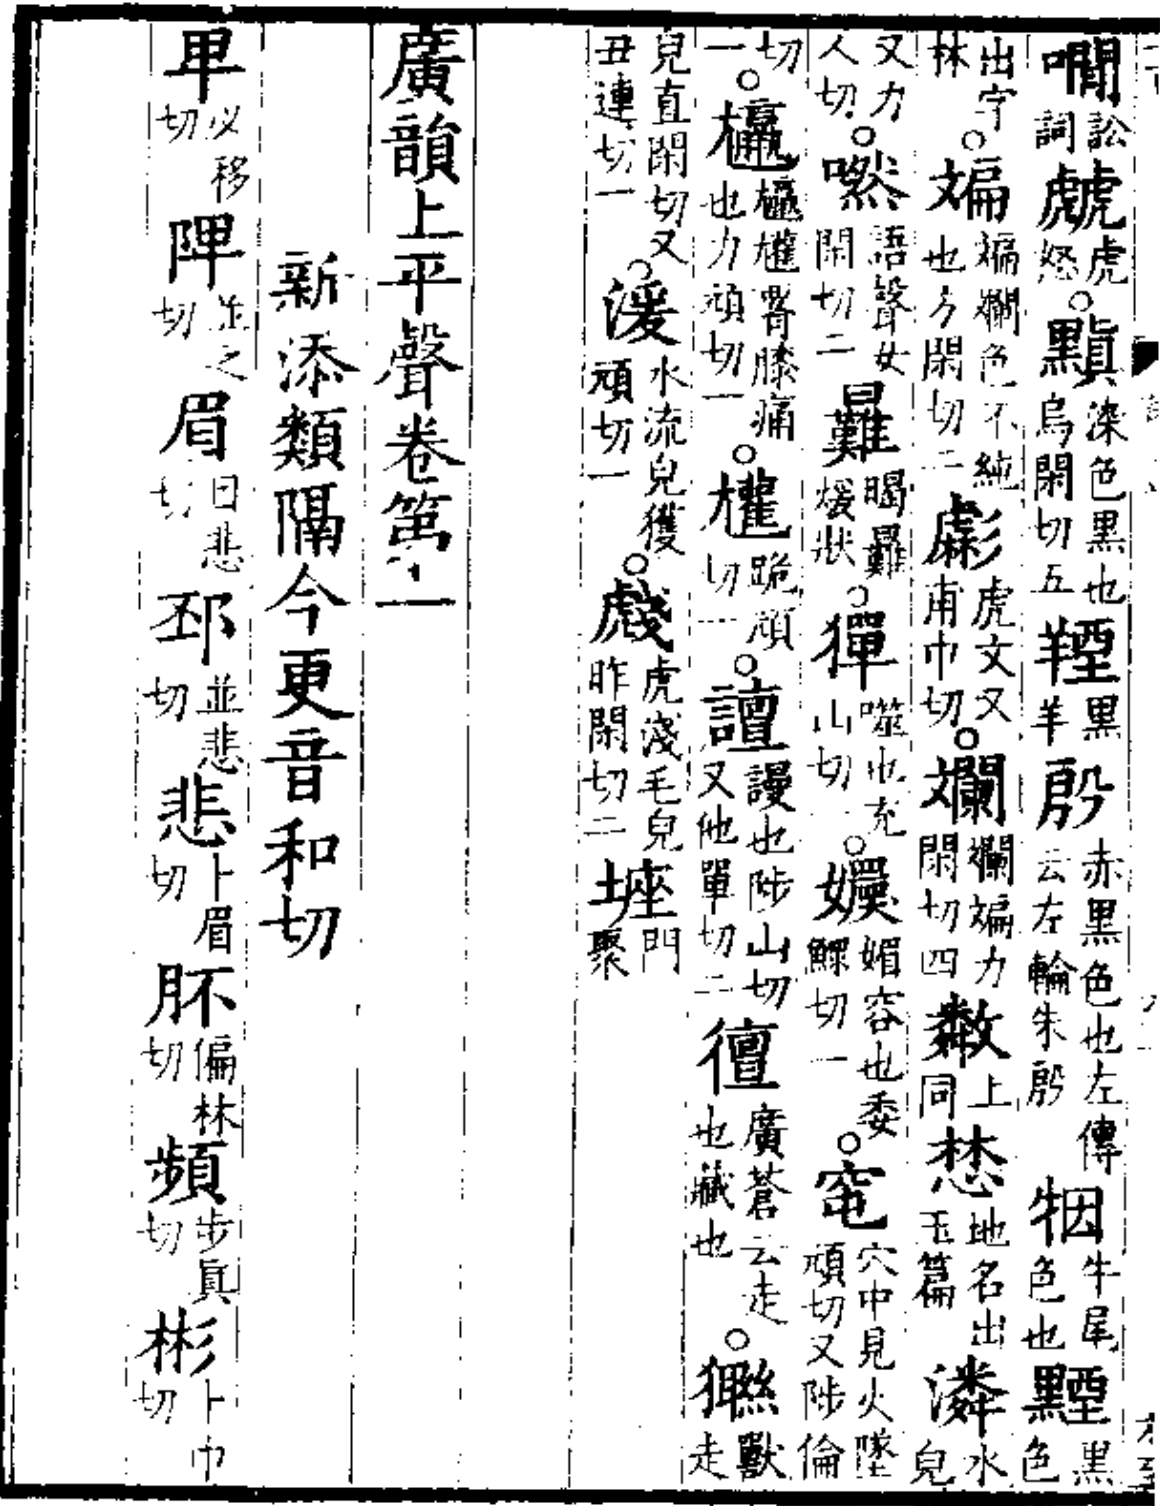 㘖訟詞虤虎怒○黰染色黑也烏閑切五羥黑羊殷赤黑色也左傳云左輪朱殷牰牛尾色也黫黑色
出字林○斒斒斕色不純也方閑切二虨虎文又甫巾切○斕斕斒力閑切四㪮上同惏地名出玉篇潾水皃
又力人切○㘈語聲女閑切二㬮暍㬮煖狀○獋噬也充山切○嬽媚容也委鰥切一○窀穴中見火墜頑切又陟倫
切一○尷尷𡰠膝痛也力頑切一○𡰠跪頑切一○譠謾也陟山切又他單切二儃廣蒼云走也藏也○獑獸走
皃直閑切又丑連切一○湲水流皃獲頑切一○虥虎淺毛皃昨閑切二㘸門聚
廣韻上平聲卷第一
新添類隔今更音和切
卑必移切陴並之切眉目悲切邳並悲切悲卜眉切肧偏杯切頻步真切彬卜巾切